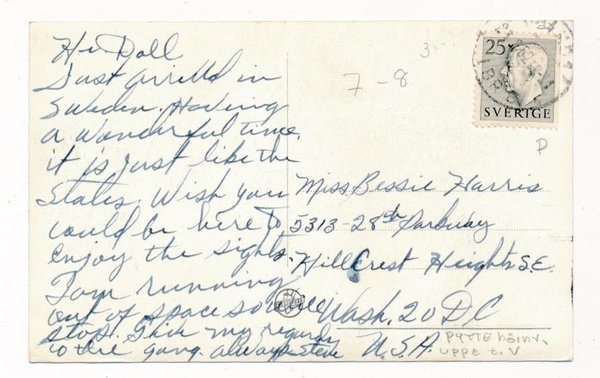 Hi Doll
Just arrived in
Sweden. Having
a wonderful time,
it is just like the
States. Wish you
could be here to
enjoy the sights.
I am running
out of space so will
stop. Give my regards
to the gang. always Steve
3-
7-8
25
SVERIGE
D
Miss Bessie Harris
5313-28th Parkway
HillCrest Heights S.E.
Wash. 20 DC
U.S.A.
uppe t.v